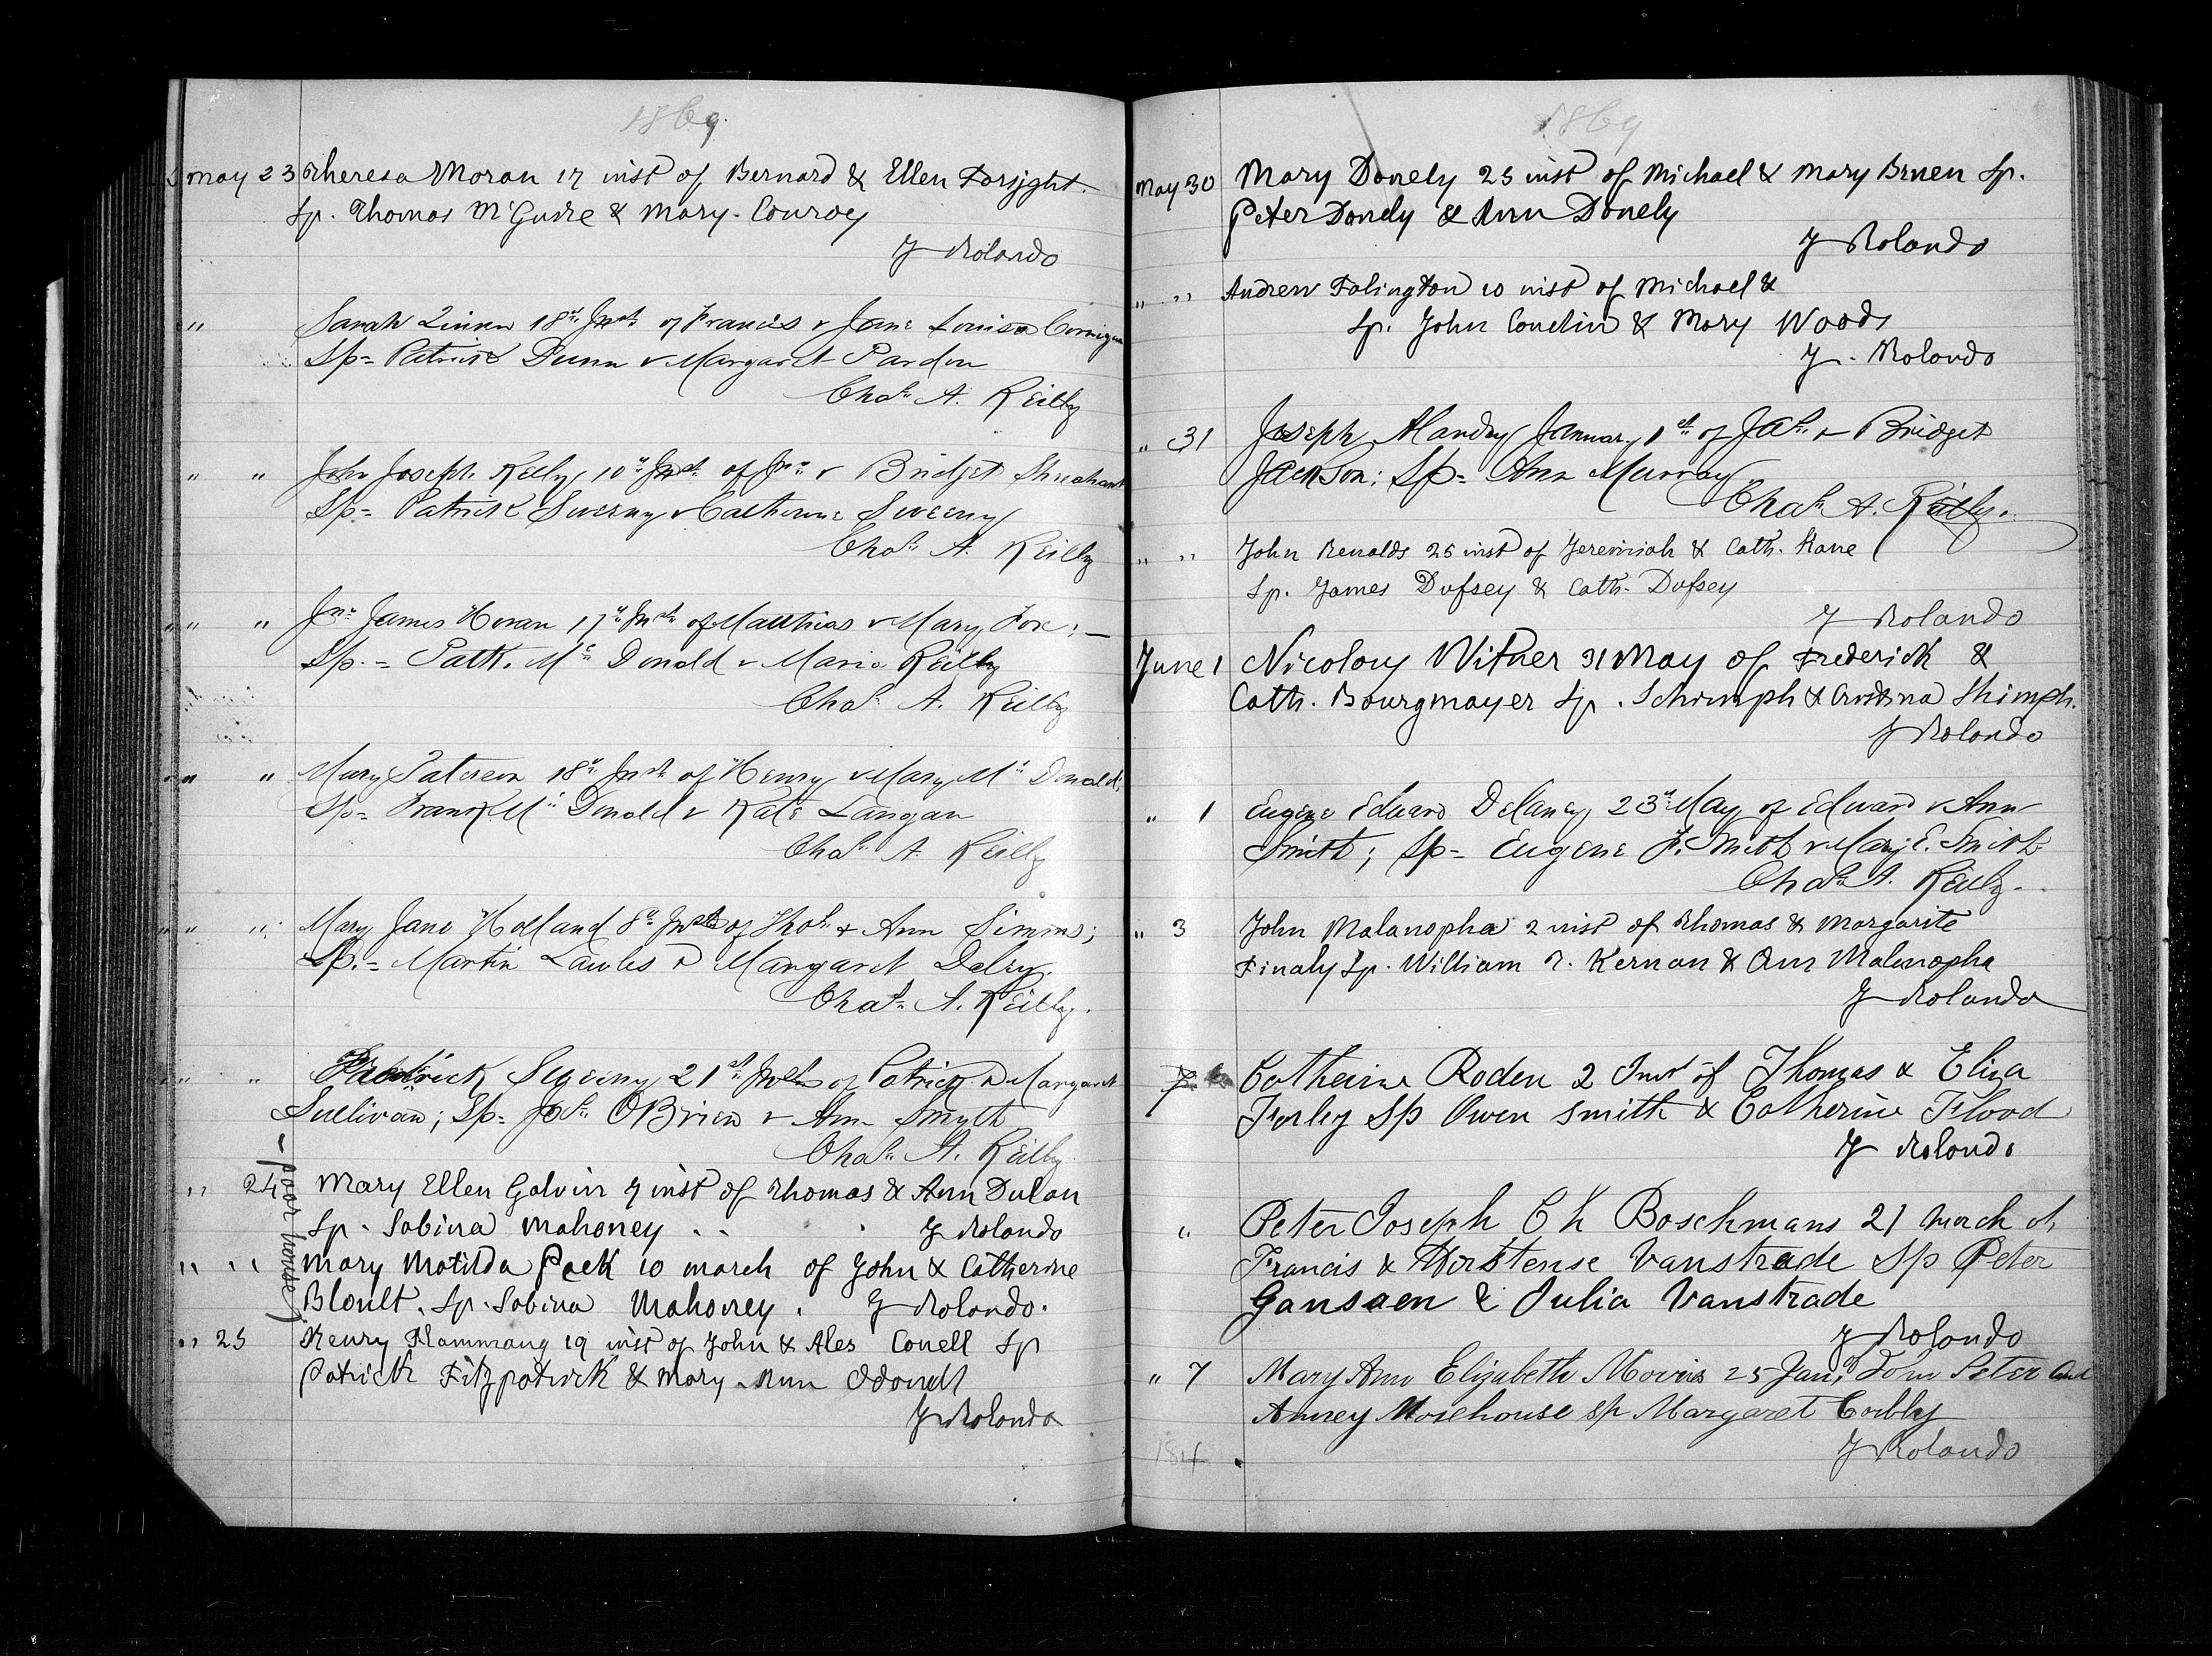 1869.
May 23 Theresa Moran 17 inst of Bernard & Ellen Forsyght.
Sp. Thomas McGuire & Mary Conroy
J Rolando
" Sarah Linen 18th Inst. of Francis & Jane Louisa Corrigan
Sp= Patrick Dunn & Margaret Pardon
Chas. A. Reilly
" " John Joseph Kelly 10th Inst. of Jno. & Bridget
Sp= Patrick Sweeny & Catherine Sweeny
Chas. A. Reilly
" " Jno. James Horan 17th Inst. of Matthias & Mary Fox; —
Sp. = Patk. Mc Donald & Maria Reilly
Chas. A. Reilly
" " Mary Paterson 18th Inst. of Henry & Mary Mc Donald;
Sp= Frank Mc Donald & Kate Langan
Chas. A. Reilly
" " Mary Jane Holland 8th Inst. of Thos. & Ann Simms;
Sp. = Martin Lawles & Margaret Delry.
Chas. A. Reilly.
" " Patrick Sweeny 21st Inst. of Patrick & Margaret
Sullivan; Sp= Jos. OBrien & Ann Smyth
Chas. A. Reilly
" 24 Mary Ellen Galvin 7 inst of Thomas & Ann Dulan
Sp. Sabina Mahoney . . . J Rolando
- poor house)
" " Mary Matilda Paek 10 march of John & Catherine
Bloult. Sp. Sabina Mahoney. J Rolando.
" 25 Henry Flammang 19 inst of John & Ales Conell Sp
Patrick Fitzpatrick & Mary Ann Odonell
J Rolando
1869
May 30 Mary Donely 25 inst of Michael & Mary Bruen Sp.
Peter Donely & Ann Donely
J Rolando
" " Andrew Falington 10 inst of Michael &
Sp. John Conelin & Mary Woods
J. Rolando
" 31 Joseph Alandry January 1st of Jas. & Bridget
Jackson; Sp= Ann Murray
Chas. A. Reilly.
" " John Renalds 25 inst of Jeremiah & Cath. Kane
Sp. James Dufsey & Cath. Dufsey
J Rolando
June 1 Nicolouy Witner 31 May of Frederick &
Cath. Bourgmayer Sp. Schrimph & Cristina Shimph.
J Rolando
" 1 Eugene Edward Delaney 23rd May of Edward & Ann
Smith; Sp= Eugene F. Smith & Mary E. Smith
Chas. A. Reilly.
" 3 John Malanopha 2 inst of Thomas & Margarite
Finaly Sp. William T. Kernan & Ann Malanopha
J Rolando
Catherine Roden 2 Inst of Thomas & Eliza
Ferley Sp Owen Smith & Catherine Flood
J Rolando
" Peter Joseph Ch Boschmans 21 March of
Francis & Horstense Vanstrade Sp Peter
Gansaen & Julia Vanstrade
J Rolando
" 7 Mary Ann Elizabeth Morris 25 Jan. of John Peter and
Anney Morehouse Sp Margaret Corbly
J Rolando